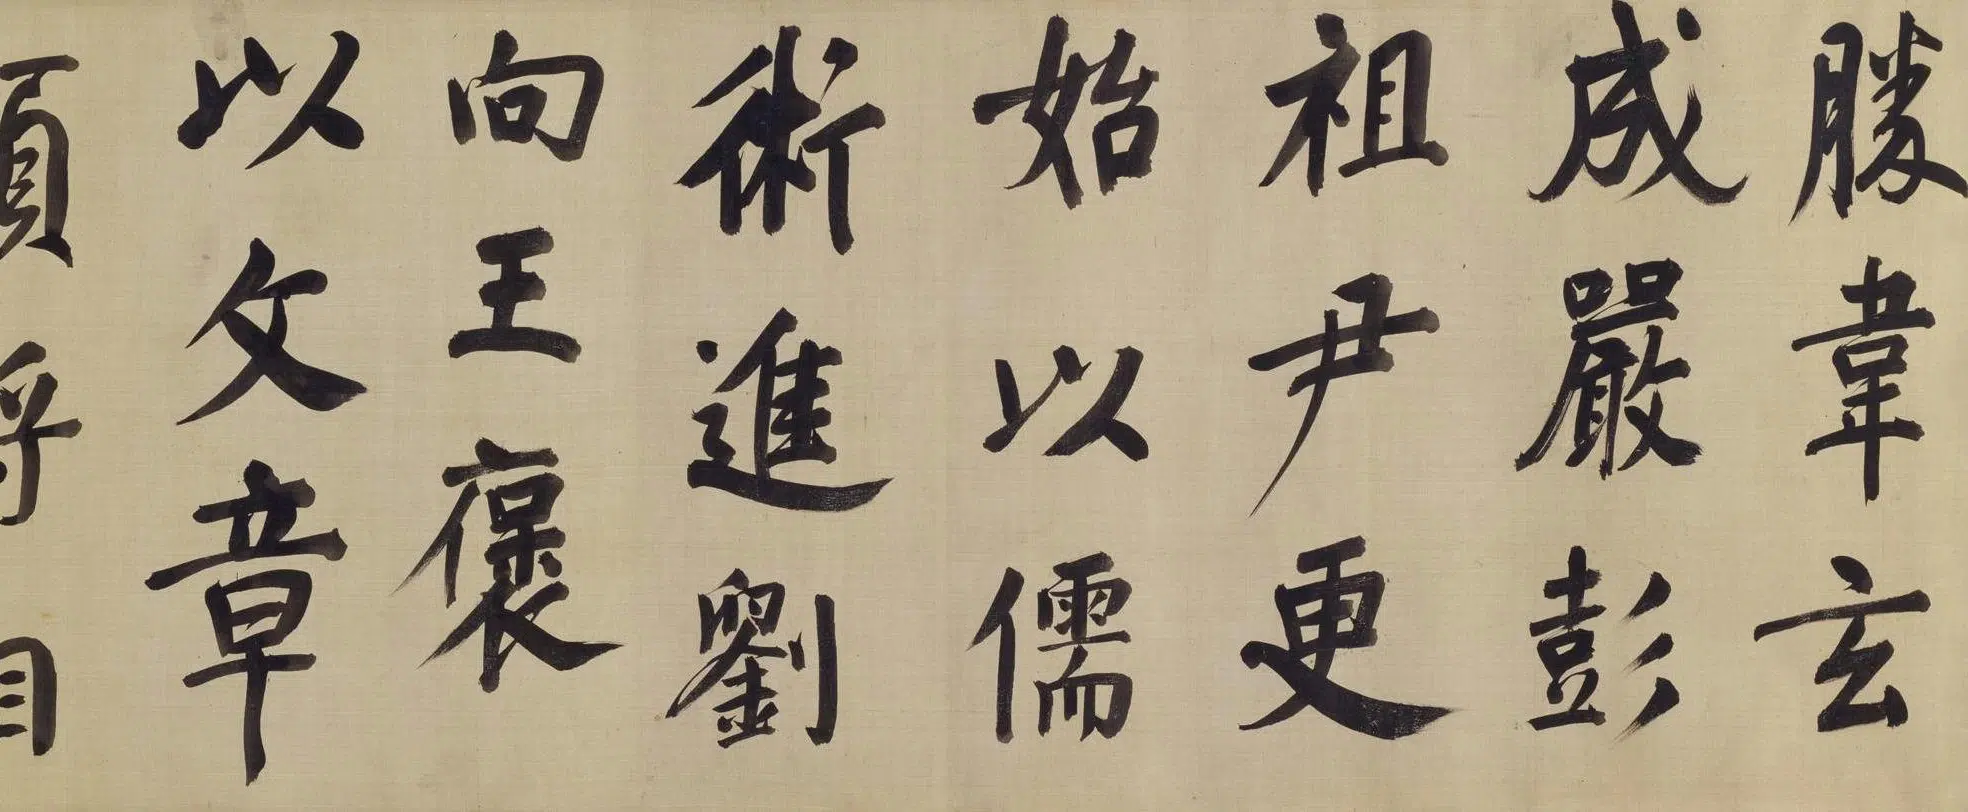 勝韋玄
成嚴彭
祖尹更
始以儒
術進劉
向王褒
以文章